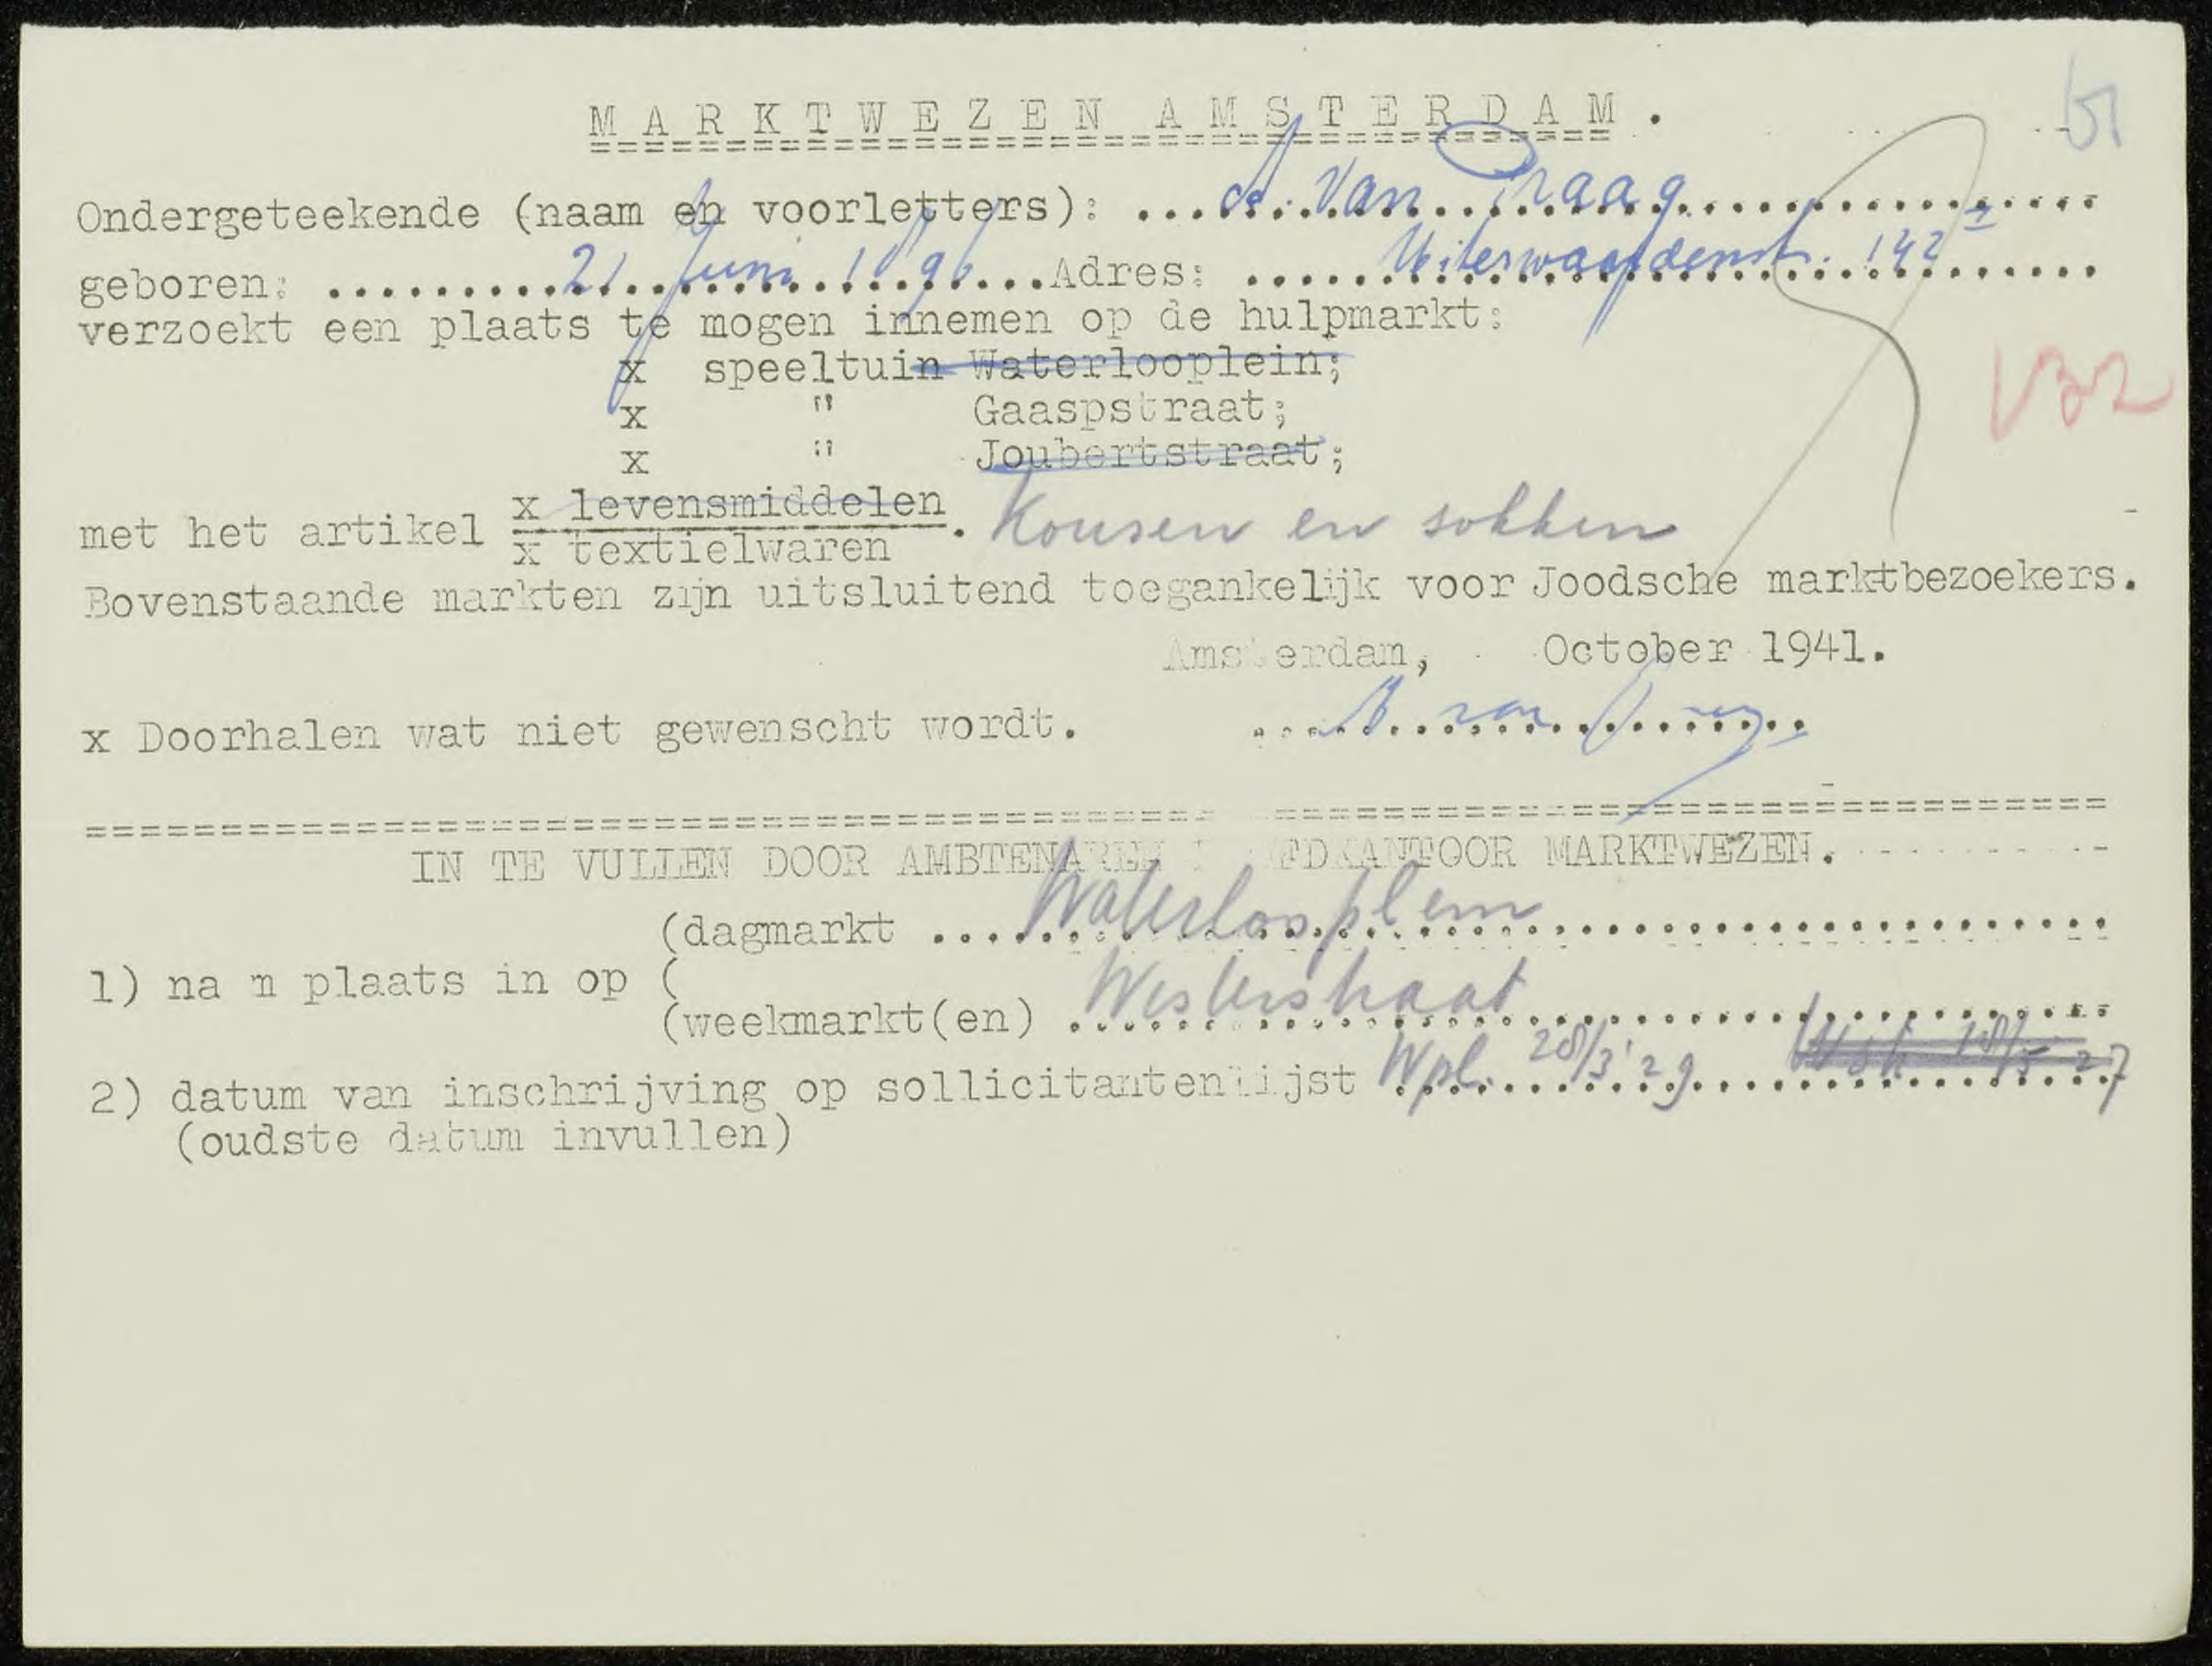 MARKTWEZEN AMSTERDAM.
51
Ondergeteekende (naam en voorletters): ...A. van Praag...
geboren: ...21 Juni 1896...Adres: ...Uiterwaardenst. 142 II...
verzoekt een plaats te mogen innemen op de hulpmarkt:
x speeltuin Waterlooplein;
x " Gaaspstraat;
132
x " Joubertstraat;
x levensmiddelen
met het artikel . Kousen en sokken
x textielwaren
Bovenstaande markten zijn uitsluitend toegankelijk voor Joodsche marktbezoekers.
Amsterdam, October 1941.
x Doorhalen wat niet gewenscht wordt. ...A van Praag...
IN TE VULLEN DOOR AMBTENAREN FDKANTOOR MARKTWEZEN.
(dagmarkt ...Waterlooplein...
1) na m plaats in op (
(weekmarkt(en) ...Westerstraat...
2) datum van inschrijving op sollicitantenlijst Wpl. 28/3'29 Wstr 18/5 27
(oudste datum invullen)